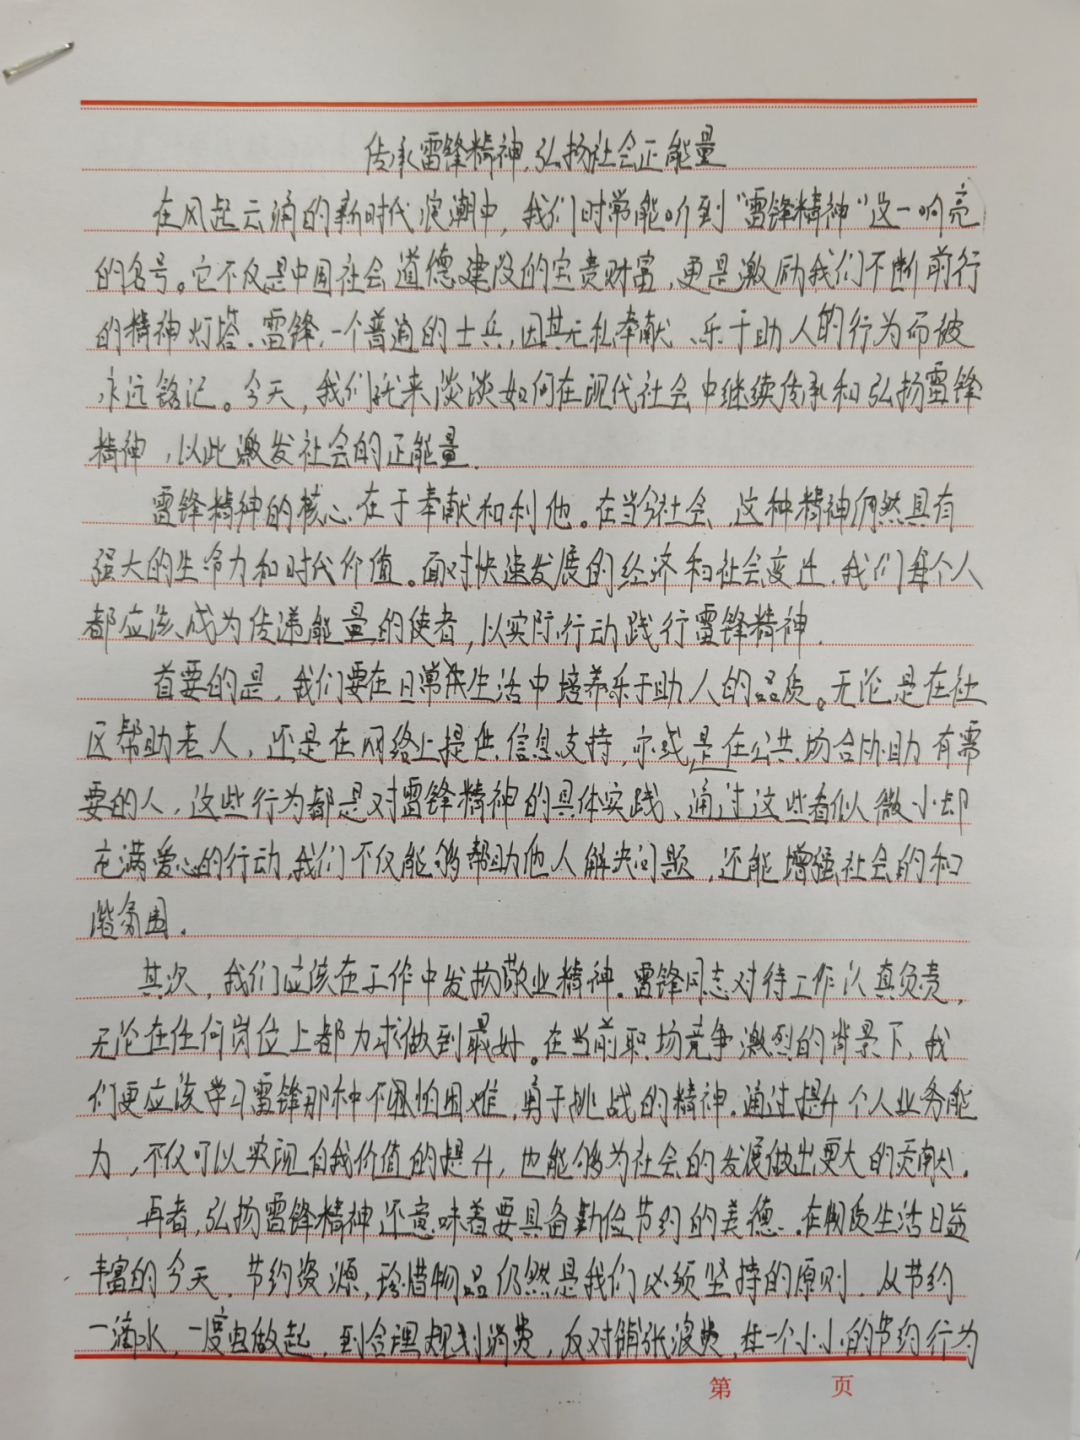 传承雷锋精神,弘扬社会正能量
在风起云涌的新时代浪潮中，我们时常能听到“雷锋精神”这一响亮
的名号。它不仅是中国社会道德建设的宝贵财富,更是激励我们不断前行
的精神灯塔.雷锋,一个普通的士兵,因其无私奉献、乐于助人的行为而被
永远铭记。今天，我们就来谈谈如何在现代社会中继续传承和弘扬雷锋
精神，以此激发社会的正能量.
雷锋精神的核心在于奉献和利他。在当今社会,这种精神仍然具有
强大的生命力和时代价值。面对快速发展的经济和社会变迁,我们每个人
都应该成为传递能量的使者,以实际行动践行雷锋精神.
首要的是,我们要在日常生活中培养乐于助人的品质。无论是在社
区帮助老人,还是在网络上提供信息支持,亦或是在公共场合协助有需
要的人,这些行为都是对雷锋精神的具体实践、通过这些看似微小却
充满爱心的行动,我们不仅能够帮助他人解决问题,还能增强社会的和
谐氛围.
其次,我们应该在工作中发扬敬业精神.雷锋同志对待工作认真负责,
无论在任何岗位上都力求做到最好。在当前职场竞争激烈的背景下,我
们更应该学习雷锋那种不惧怕困难,勇于挑战的精神.通过提升个人业务能
力,不仅可以实现自我价值的提升,也能够为社会的发展做出更大的贡献.
再者,弘扬雷锋精神还意味着要具备勤俭节约的美德.在物质生活日益
丰富的今天.节约资源,珍惜物品仍然是我们必须坚持的原则.从节约
一滴水,一度电做起,到合理规划消费,反对铺张浪费,在一个小小的节约行为
第 页